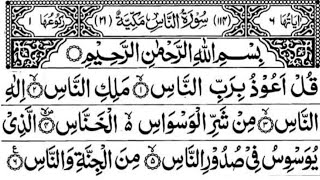 اٰيَاتُهَا ٦ (١١٤) سُوْرَةُ النَّاسِ مَكِّيَّةٌ (٢١) رُكُوْعُهَا ١
بِسْمِ اللهِ الرَّحْمٰنِ الرَّحِيْمِ
قُلْ اَعُوْذُ بِرَبِّ النَّاسِ ۝١ مَلِكِ النَّاسِ ۝٢ اِلٰهِ
النَّاسِ ۝٣ مِنْ شَرِّ الْوَسْوَاسِ ەۙ الْخَنَّاسِ ۝٤ الَّذِيْ
يُوَسْوِسُ فِيْ صُدُوْرِ النَّاسِ ۝٥ مِنَ الْجِنَّةِ وَالنَّاسِ ۝٦